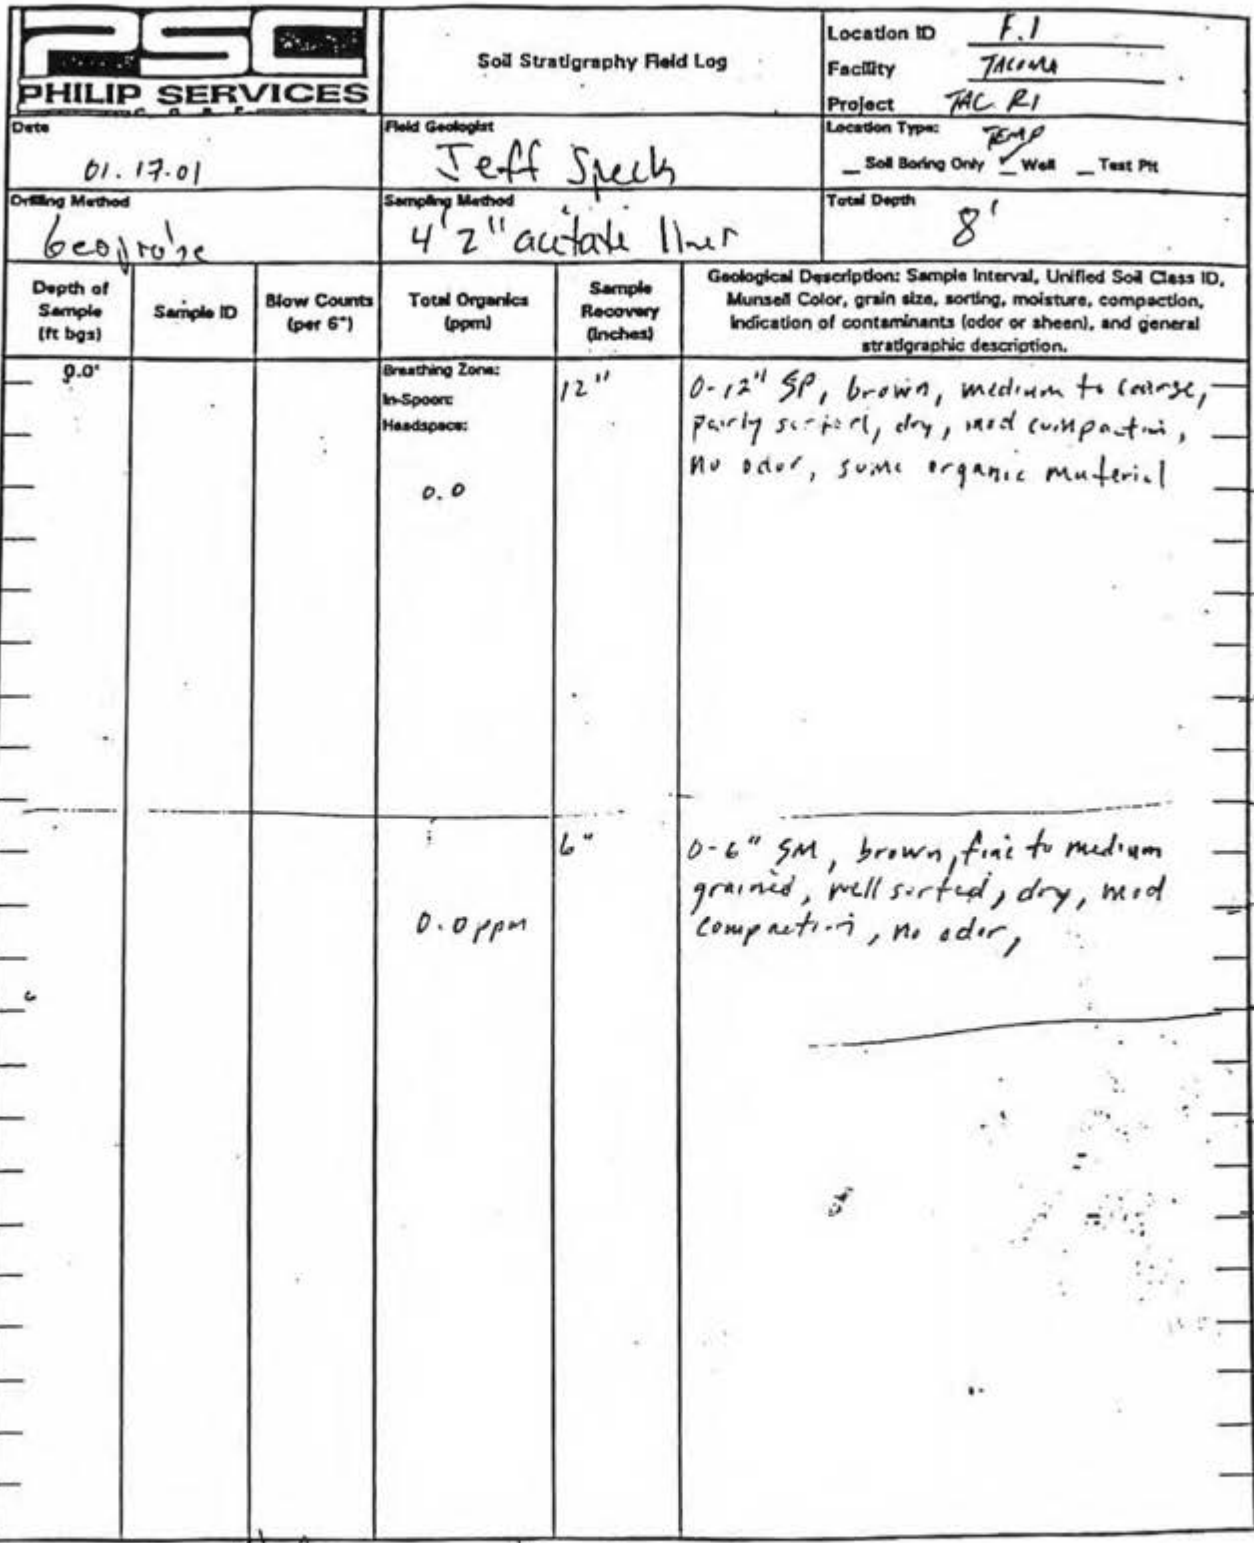 PSC
PHILIP SERVICES
Soil Stratigraphy Field Log
Location ID F.1
Facility TACOMA
Project TAC RI
Date
01.17.01
Field Geologist
Jeff Speck
Location Type: TEMP
_ Soil Boring Only ✓ Well _ Test Pit
Drilling Method
Geoprobe
Sampling Method
4' 2" acetate liner
Total Depth
8'
Depth of Sample (ft bgs)
Sample ID
Blow Counts (per 6")
Total Organics (ppm)
Sample Recovery (inches)
Geological Description: Sample Interval, Unified Soil Class ID,
Munsell Color, grain size, sorting, moisture, compaction,
indication of contaminants (odor or sheen), and general
stratigraphic description.
Breathing Zone:
In-Spoon:
Headspace:
0.0
12"
0-12" SP, brown, medium to coarse,
sorted, dry, mod compaction,
no odor, some organic material
6"
0.0 ppm
0-6" SM, brown, fine to medium
grained, well sorted, dry, mod
compaction, no odor,